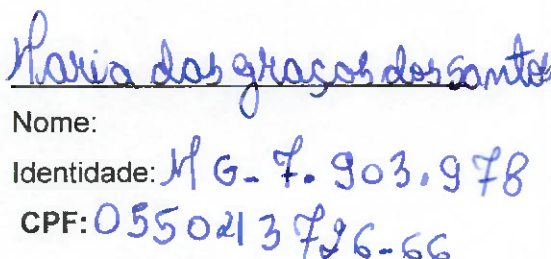 Maria das graças dos santos
Nome:
Identidade: MG-7.903.978
CPF: 0550213726-66